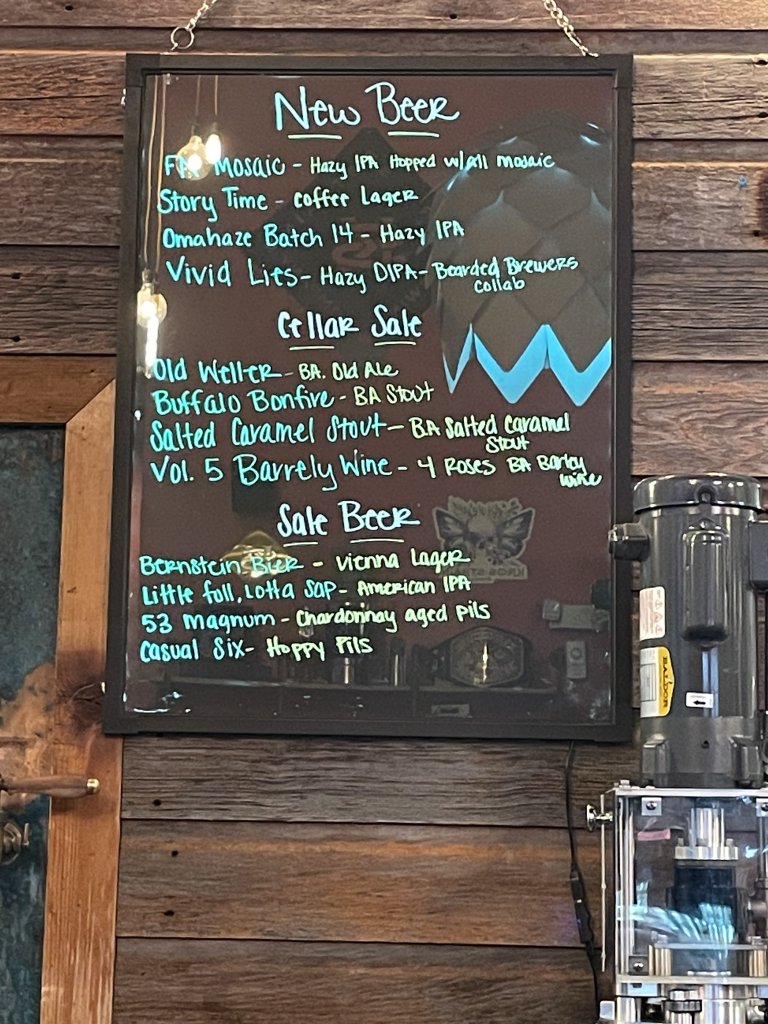 New Beer
Mosaic - Hazy IPA Hopped w/all mosaic
Story Time - coffee Lager
Omahaze Batch 14 - Hazy IPA
Vivid Lies - Hazy DIPA - Bearded Brewers
collab
Cellar Sale
Old Weller - BA. Old Ale
Buffalo Bonfire - BA Stout
Salted Caramel Stout - BA Salted Caramel
Stout
Vol. 5 Barrely Wine - 4 Roses BA Barley
wine
Sale Beer
Bernstein Bier - Vienna Lager
Little foll, Lotta Sap - American IPA
53 Magnum - Chardonnay aged Pils
Casual Six - Hoppy Pils
BALDOR